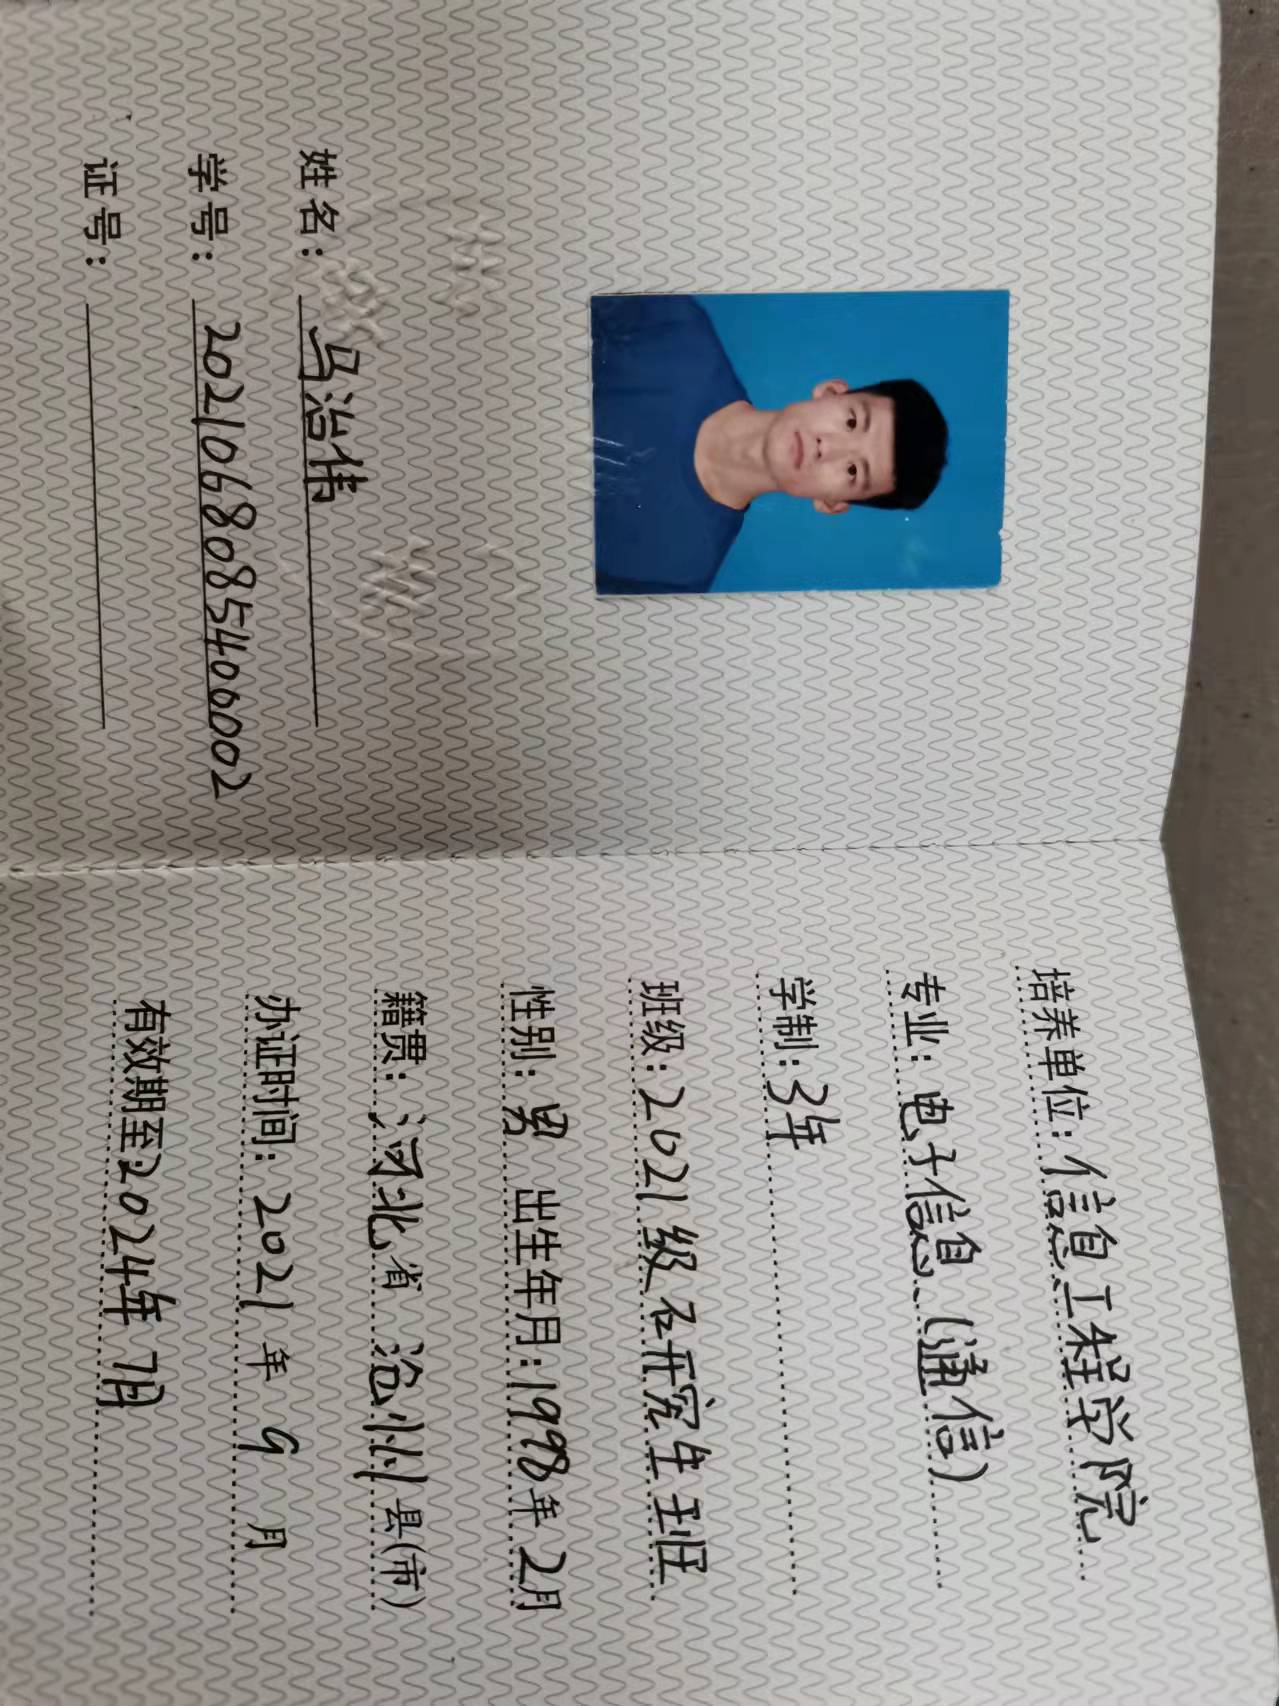 姓名：马治伟
学号：2021068085400002
证号：
培养单位：信息工程学院
专业：电子信息（通信）
学制：3年
班级：2021级研究生班
性别：男 出生年月：1998年2月
籍贯：河北省 沧州县(市)
办证时间：2021年9月
有效期至：2024年7月